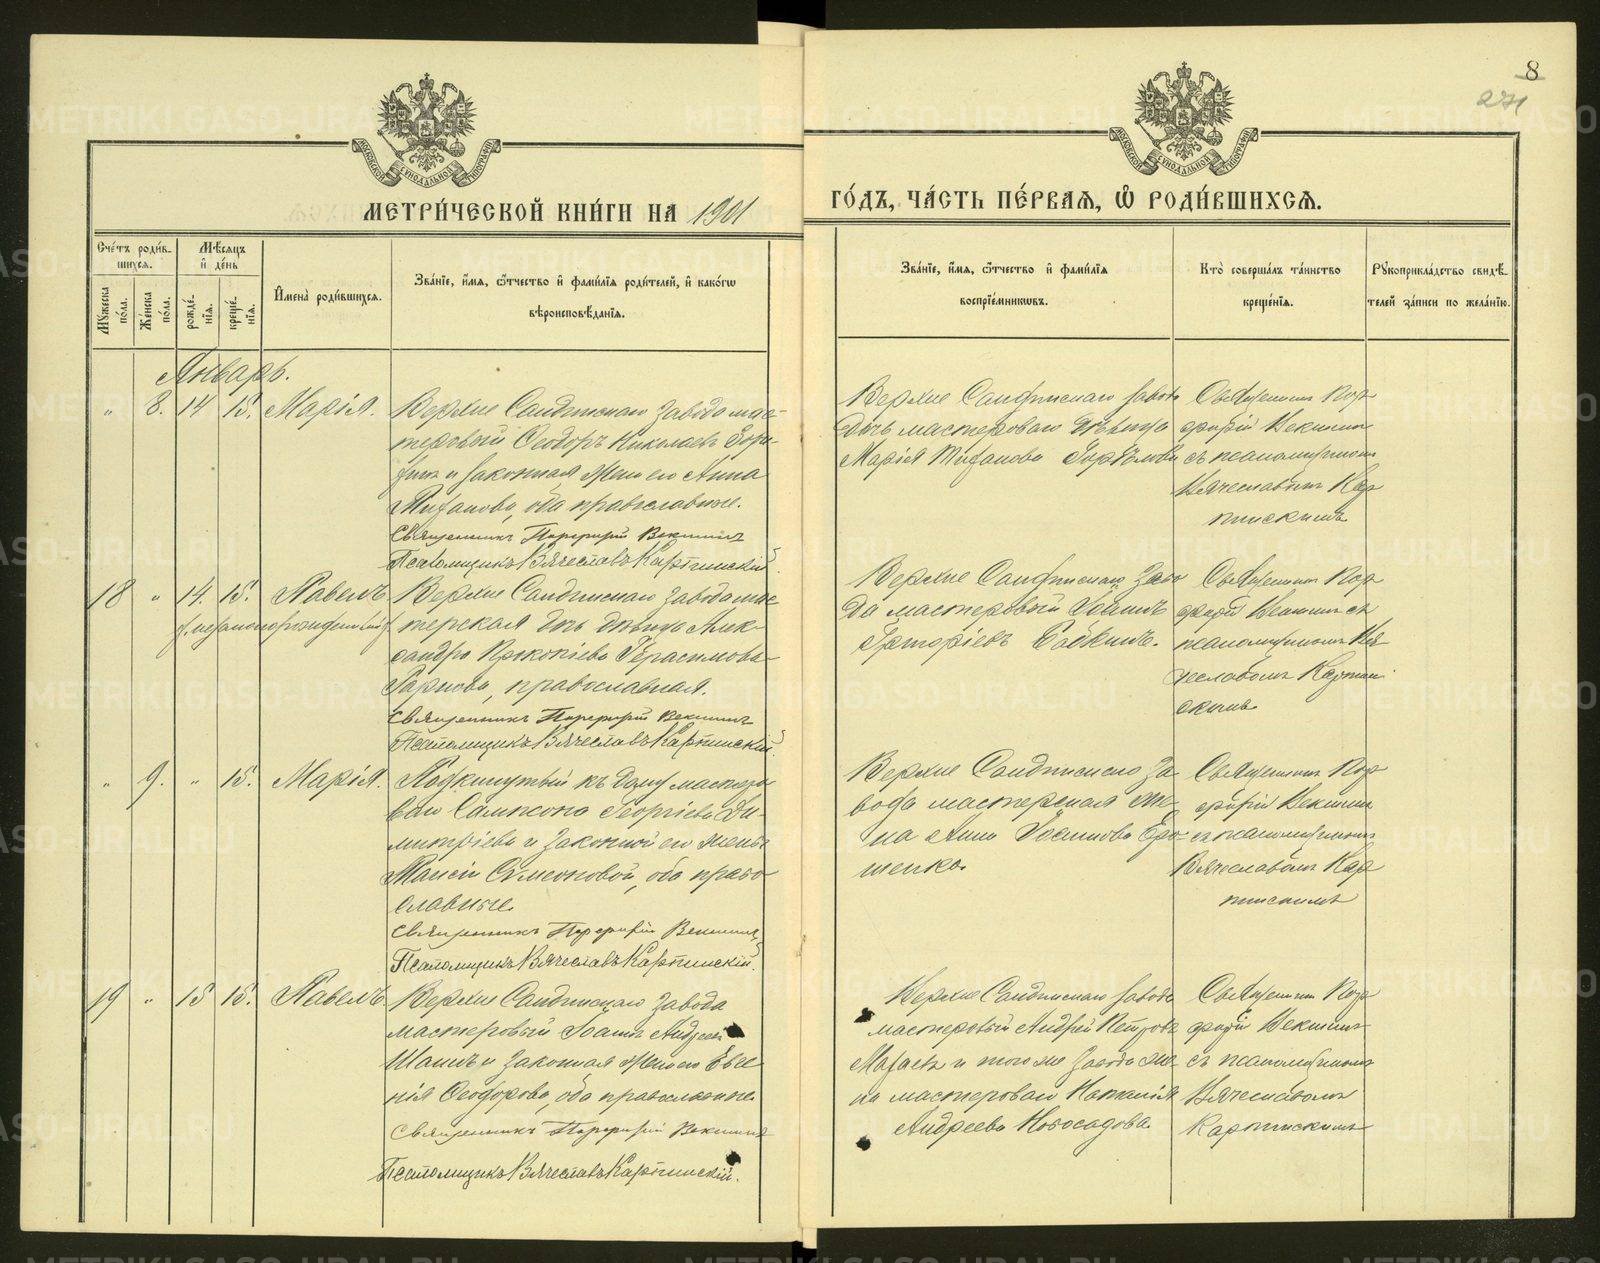 8
271
МЕТРИ́ЧЕСКОЙ КНИ́ГИ НА 1901
ГО́ДЪ, ЧА́СТЬ ПЕ́РВАЯ, Ѿ РОДИ́ВШИХСЯ.
Сче́тъ роди́в-
шихся.
Мѣ́сяцъ
и де́нь
Му́жеска по́ла.
Же́нска по́ла.
рожде́нія.
креще́нія.
И́мена роди́вшихся.
Зва́ніе, и́мя, ѻ́тчество и фами́лія роди́телей, и како́гѡ
вѣроисповѣ́данія.
Зва́ніе, и́мя, ѻ́тчество и фами́лія
воспріе́мникѡвъ.
Кто̀ соверша́лъ та́инство
креще́нія.
Рꙋкоприкла́дство свидѣ́-
телей за́писи по жела́нію.
Январь.
" 8. 14 15. Марія.
Верхне Салдинскаго завода мас-
теровой Ѳеодоръ Николаевъ
и законная жена его Анна
оба православные.
Священникъ Порфирій Векшинъ
Псаломщикъ Вячеславъ Карпинскій.
Верхне Салдинскаго завода
дочь мастероваго дѣвица
Марія
Священникъ Пор-
фирій Векшинъ
съ псаломщикомъ
Вячеславомъ Кар-
пинскимъ
18 " 14. 15. Павелъ
незаконнорожденный
Верхне Салдинскаго завода мас-
терская дочь дѣвица Алек-
сандра Прокопіева Герасимова
православная.
Священникъ Порфирій Векшинъ
Псаломщикъ Вячеславъ Карпинскій.
Верхне Салдинскаго заво-
да мастеровый Іоаннъ
Григоріевъ
Священникъ Пор-
фирій Векшинъ съ
псаломщикомъ Вя-
чеславомъ Карпин-
скимъ
" 9. " 15. Марія.
Подкинутый къ дому мастеро-
ваго Сампсона Георгіева Ди-
митріева и законной его жены
Таисіи Симеоновой, оба право-
славные.
Священникъ Порфирій Векшинъ
Псаломщикъ Вячеславъ Карпинскій.
Верхне Салдинскаго за-
вода мастерская же-
на Анна Іоакимова Еро-
шенко.
Священникъ Пор-
фирій Векшинъ
съ псаломщикомъ
Вячеславомъ Кар-
пинскимъ
19 " 15 15. Павелъ
Верхне Салдинскаго завода
мастеровый Іоаннъ Андреевъ
и законная жена его Евге-
нія Ѳеодорова, оба православные.
Священникъ Порфирій Векшинъ
Псаломщикъ Вячеславъ Карпинскій.
Верхне Салдинскаго завода
мастеровый Андрей Петровъ
и того же завода же-
на мастероваго Наталія
Андреева Новосадова.
Священникъ Пор-
фирій Векшинъ
съ псаломщикомъ
Вячеславомъ
Карпинскимъ
METRIKI.GASO-URAL.RU